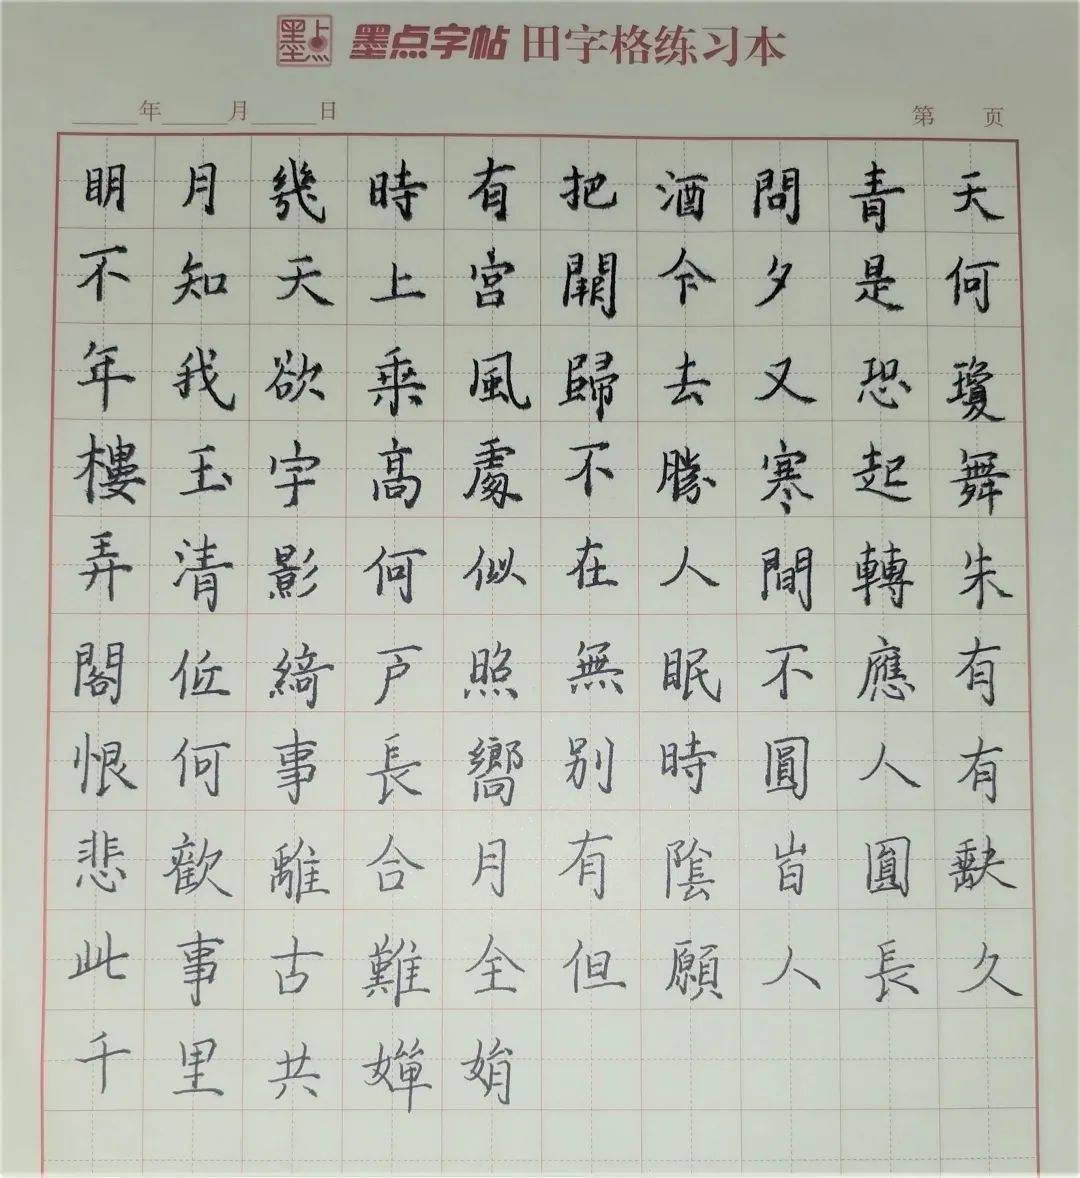 墨点 墨点字帖 田字格练习本
年 月 日 第 页
明月幾時有把酒問青天
不知天上宮闕今夕是何
年我欲乘風歸去又恐瓊
樓玉宇高處不勝寒起舞
弄清影何似在人間轉朱
閣低綺戶照無眠不應有
恨何事長嚮别時圓人有
悲歡離合月有陰晴圓缺
此事古難全但願人長久
千里共嬋娟